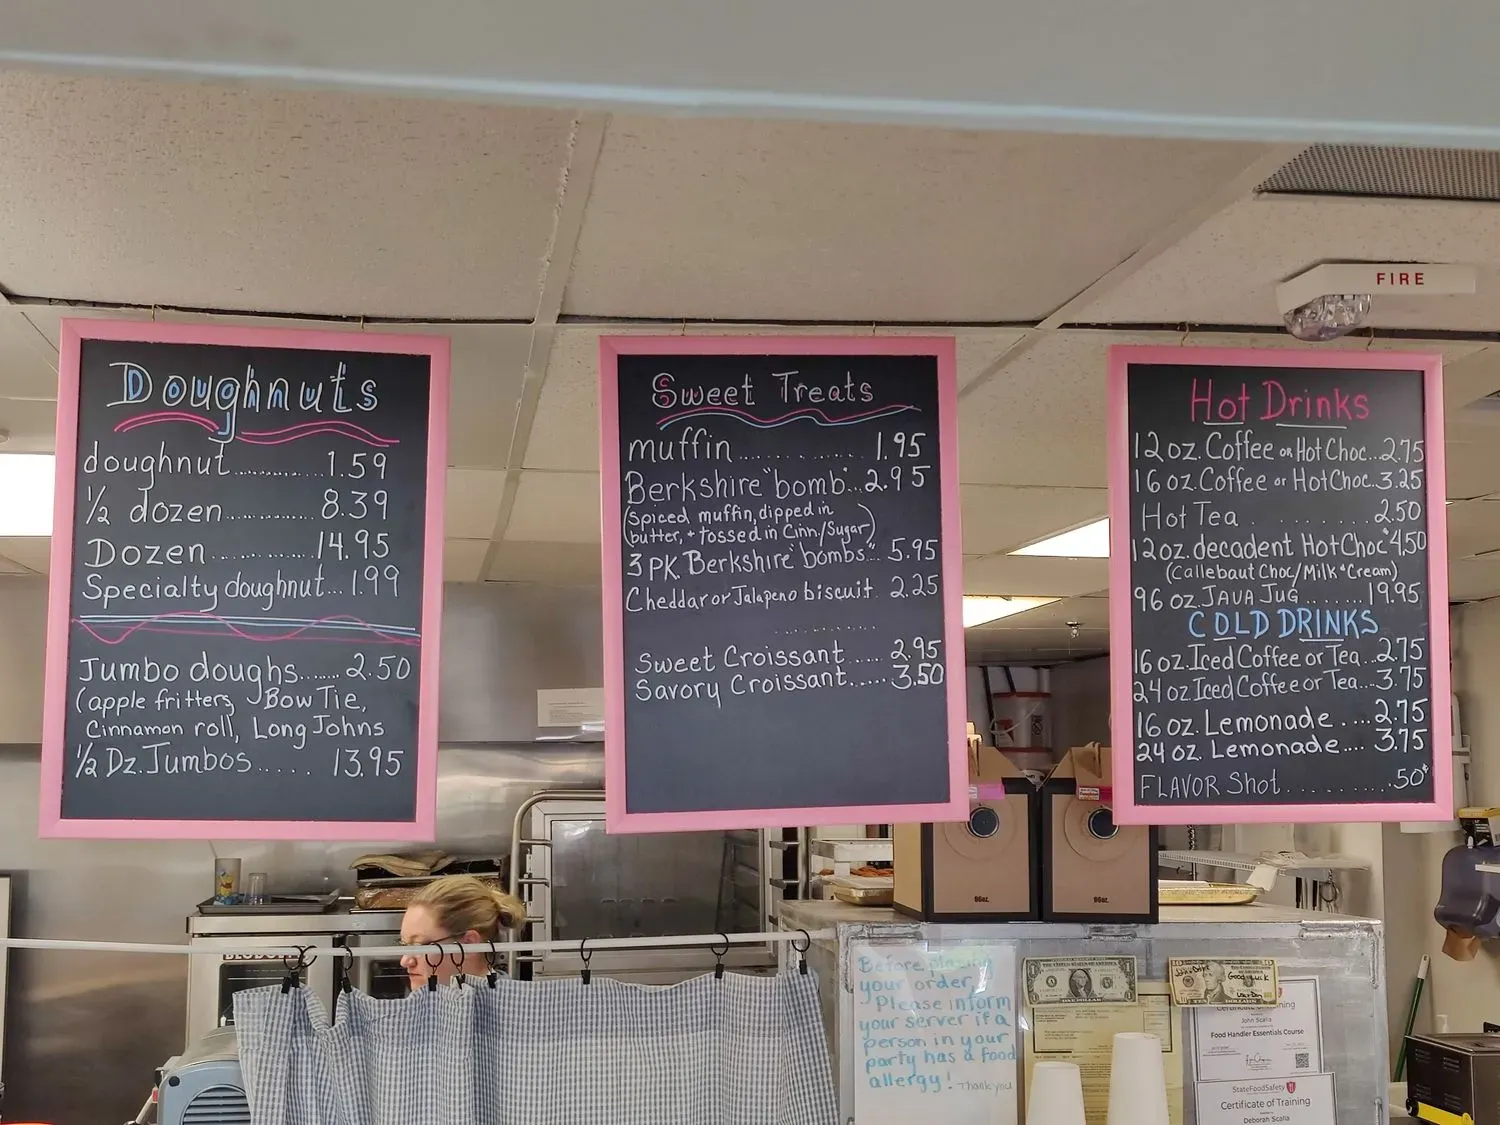 FIRE
Doughnuts
doughnut.............1.59
½ dozen............. 8.39
Dozen................14.95
Specialty doughnut...1.99
Jumbo doughs........2.50
(apple fritters, Bow Tie,
Cinnamon roll, Long Johns
½ Dz. Jumbos..... 13.95
Sweet Treats
muffin............. 1.95
Berkshire "bomb"...2.95
(spiced muffin, dipped in
butter, + tossed in Cinn/Sugar)
3 PK Berkshire "bombs".. 5.95
Cheddar or Jalapeno biscuit. 2.25
Sweet Croissant..... 2.95
Savory Croissant...... 3.50
Hot Drinks
12 oz. Coffee or Hot Choc...2.75
16 oz. Coffee or Hot Choc..3.25
Hot Tea ......... 2.50
12 oz. decadent Hot Choc $4.50
(Callebaut Choc/Milk + Cream)
96 oz. JAVA JUG.......19.95
COLD DRINKS
16 oz. Iced Coffee or Tea...2.75
24 oz Iced Coffee or Tea....3.75
16 oz. Lemonade.....2.75
24 oz. Lemonade.... 3.75
FLAVOR Shot.......... .50¢
96oz.
96oz.
Before placing
your order,
Please inform
your server if a
person in your
party has a food
allergy! Thank you
Good Luck
John Scalia
Food Handler Essentials Course
StateFoodSafety
Certificate of Training
Deborah Scalia